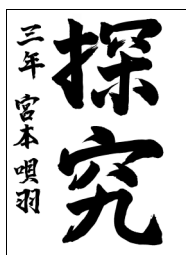 探究
三年 宮本 唄羽